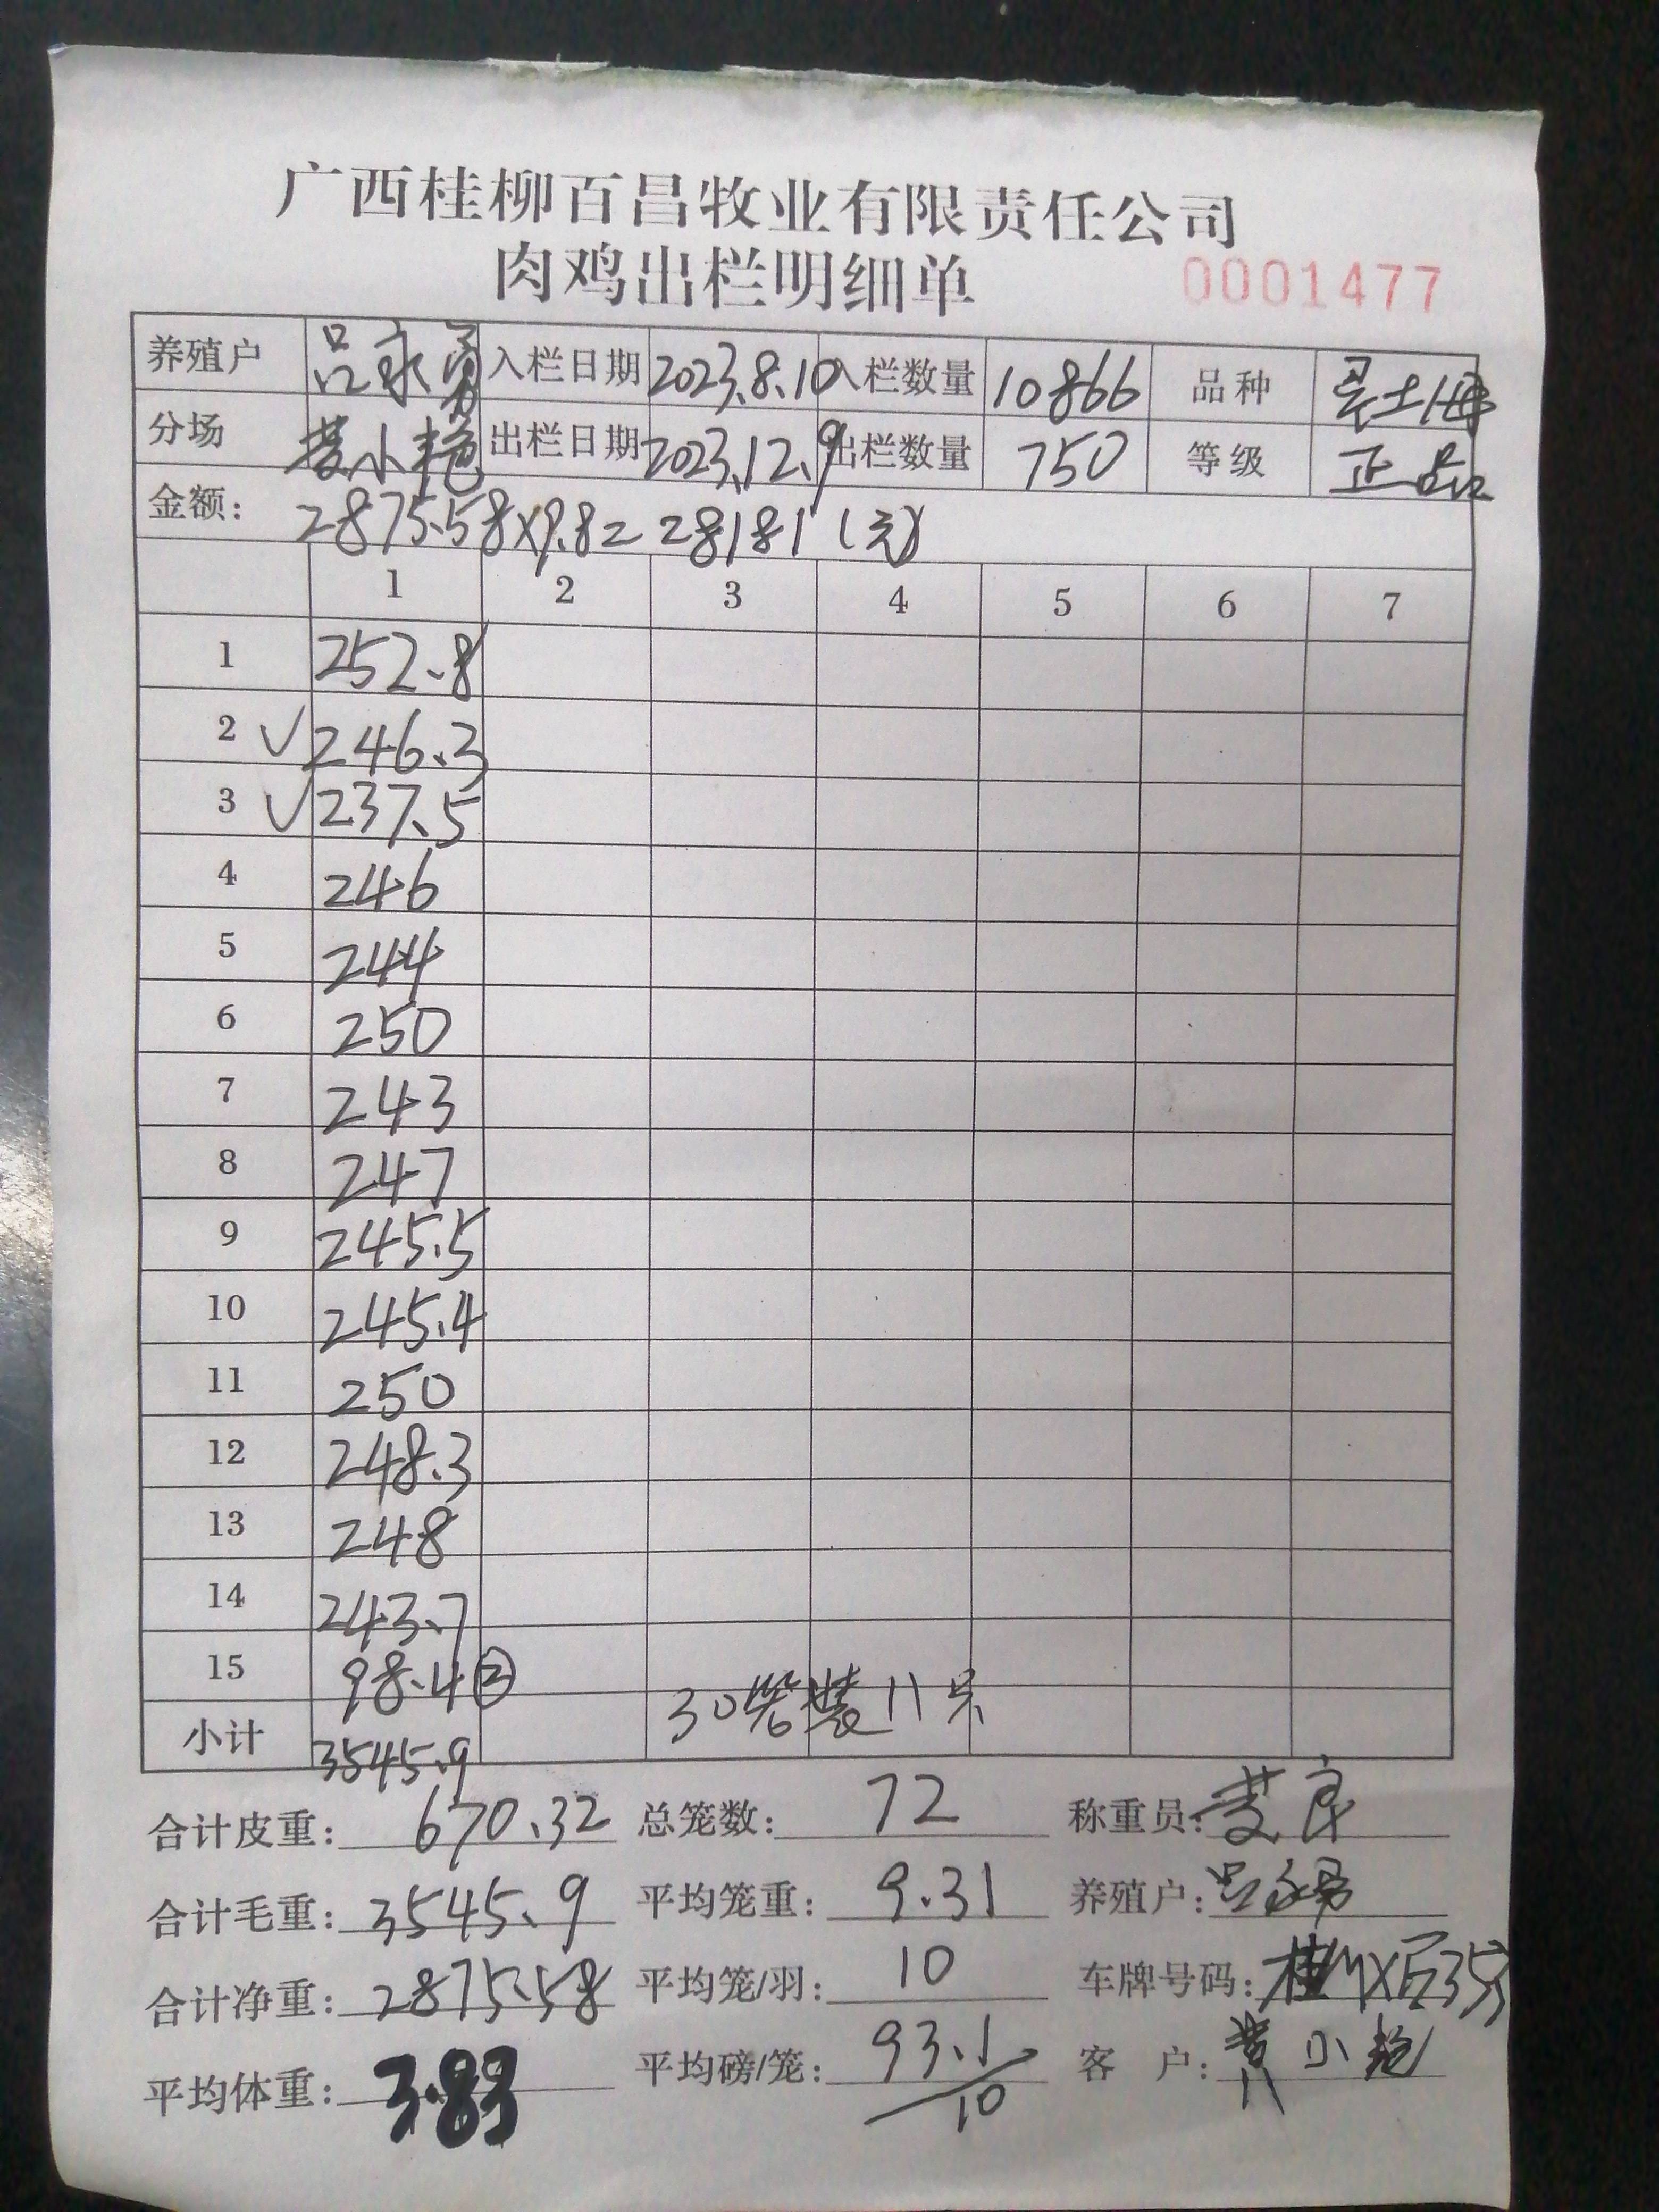 广西桂柳百昌牧业有限责任公司
肉鸡出栏明细单 0001477
养殖户 吕永勇 入栏日期 2023.8.10 入栏数量 10866 品种 土
分场 小艳 出栏日期 2023.12.9 出栏数量 750 等级 正品
金额: 2875.58×9.8= 28181(元)
1 2 3 4 5 6 7
1 252.8
2 √ 246.3
3 √ 237.5
4 246
5 244
6 250
7 243
8 247
9 245.5
10 245.4
11 250
12 248.3
13 248
14 243.7
15 98.4 ②
小计 3545.9 30笼装11只
合计皮重: 670.32 总笼数: 72 称重员:
合计毛重: 3545.9 平均笼重: 9.31 养殖户: 吕永勇
合计净重: 2875.58 平均笼/羽: 10 车牌号码: 桂MX
平均体重: 3.83 平均磅/笼: 93.1/10 客 户: 黄小艳